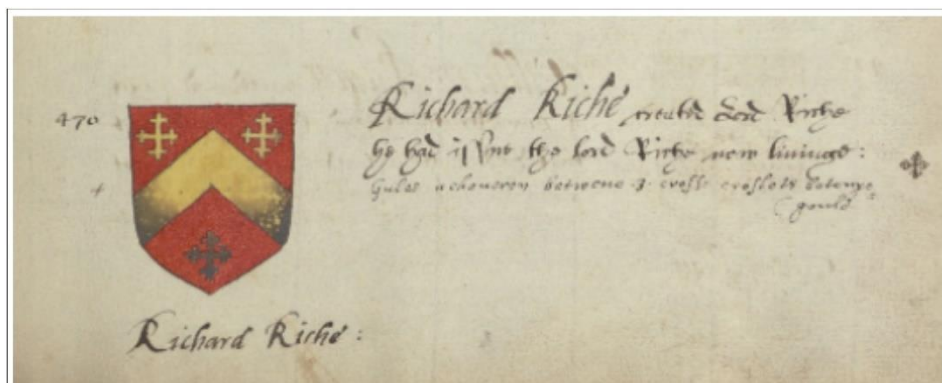 470
Richard Riche created Lord Riche
he had issue the lord Riche now livinge:
Gules a cheveron betwene 3 crosse croslets botonye
gould
Richard Riche: